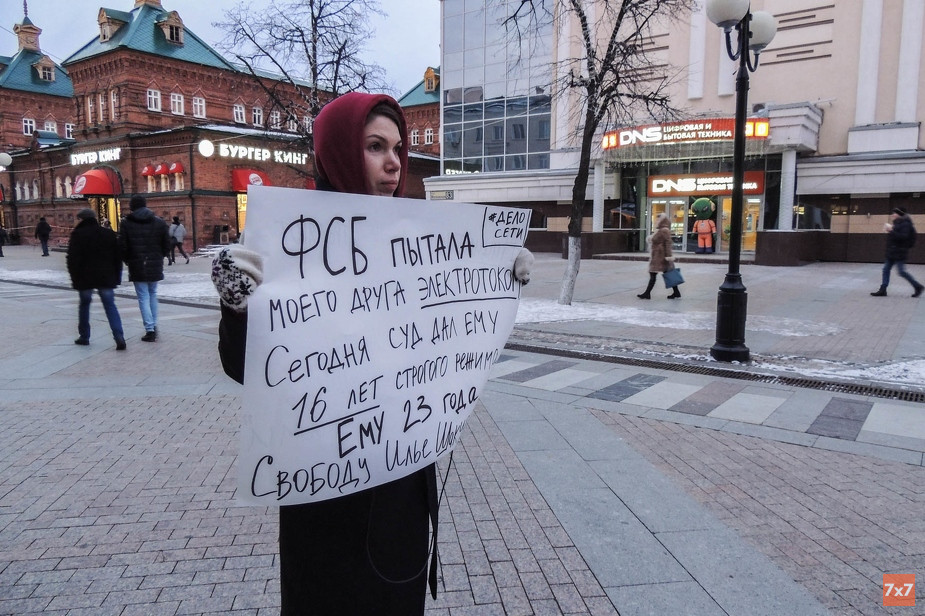 БУРГЕР КИНГ
БУРГЕР КИНГ
DNS ЦИФРОВАЯ И БЫТОВАЯ ТЕХНИКА
DNS ЦИФРОВАЯ И БЫТОВАЯ ТЕХНИКА
#ДЕЛО
СЕТИ
ФСБ ПЫТАЛА
МОЕГО ДРУГА ЭЛЕКТРОТОКОМ
СЕГОДНЯ СУД ДАЛ ЕМУ
16 ЛЕТ СТРОГОГО РЕЖИМА
ЕМУ 23 ГОДА
СВОБОДУ ИЛЬЕ
7x7